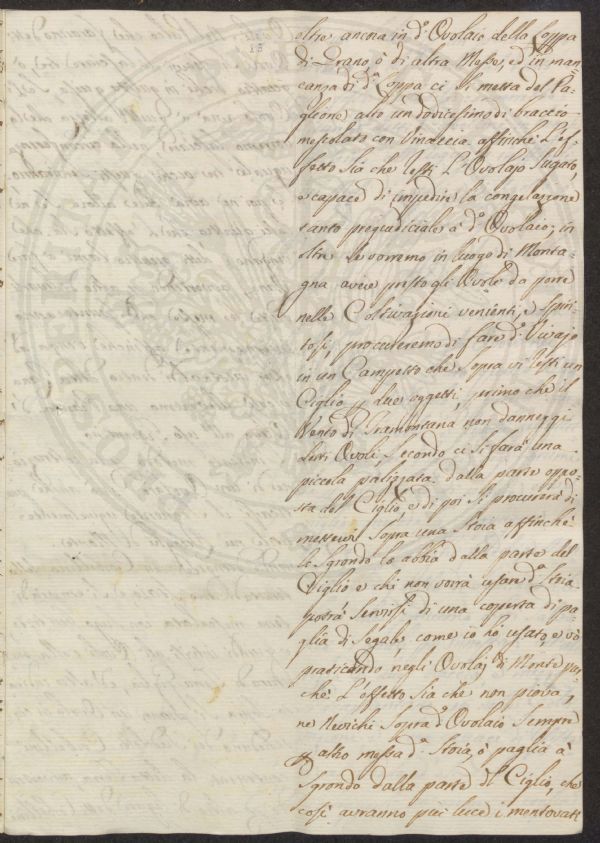 oltre ancora in d.° Ovolaio della Loppa
di Grano, ò di altra Messe, ed in man-
canza di d.ª Loppa ci si metta del Pa-
glione alto un dodicesimo di braccio
mescolato con Vinaccia affinché l'ef-
fetto sia che resti l'Ovolajo sugato,
e capace d'impedire la congelazione
tanto pregiudiciale à d.° Ovolaio; in
oltre se vorremo in luogo di Monta-
gna avere presto gli Ovoli da porre
nelle Coltivazioni venienti, e spiri-
tosi, procureremo di fare d.° Vivajo
in un Campetto che sopra vi resti un
Ciglio p due oggetti, primo che il
Vento di Tramontana non danneggi
detti Ovoli, secondo ci si farà una
piccola palizzata dalla parte oppo-
sta del Ciglio, e di poi si procurerà di
mettervi sopra una Stoia affinché
lo Sgrondo lo abbia dalla parte del
Ciglio e chi non vorrà usare d.ª Stoia
potrà servirsi di una coperta di pa-
glia di Segale come io hò usato, e vò
praticando negli Ovolaj di Monte pur-
chè l'effetto sia che non piova,
ne Nevichi sopra d.° Ovolaio sempre
p altro messa d.ª Stoia, ò paglia à
Sgrondo dalla parte d'l Ciglio, che
così avranno più luce i mentovati